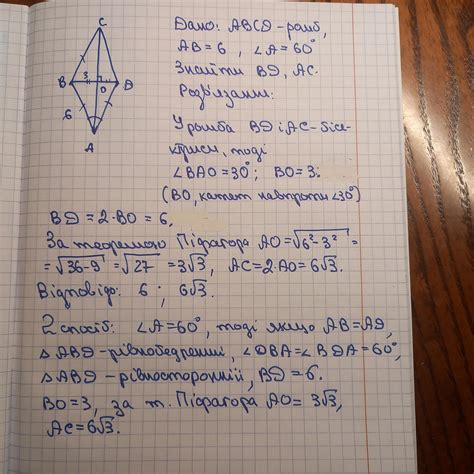 C
B 3 D
O
6
A
Дано: ABCD - ромб,
AB = 6, ∠A = 60°
Знайти BD, AC.
Розв'язання:
У ромба BD і AC - бісе-
ктриси, тоді
∠BAO = 30°; BO = 3.
(BO, катет навпроти ∠30°)
BD = 2·BO = 6,
За теоремою Піфагора AO = √6²-3² =
= √36-9 = √27 = 3√3, AC = 2·AO = 6√3.
Відповідь: 6 ; 6√3.
2 спосіб: ∠A = 60°, тоді якщо AB = AD,
△ABD - рівнобедрений, ∠DBA = ∠BDA = 60°,
△ABD - рівносторонній, BD = 6.
BO = 3, за т. Піфагора AO = 3√3,
AC = 6√3.